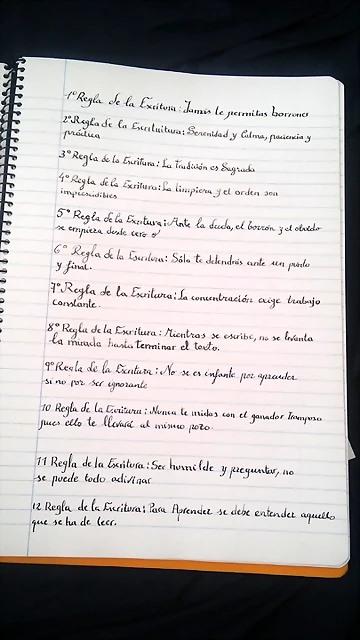 1º Regla de la Escritura: Jamás te permitas borrones
2º Regla de la Escrituitura: Serenidad y Calma, paciencia y
práctica
3º Regla de la Escritura: La tradición es Sagrada
4º Regla de la Escritura: La limpieza y el orden son
imprescindibles
5º Regla de la Escritura: Ante la duda, el borrón y el olvido
se empieza desde cero
6º Regla de la Escritura: Sólo te detendrás ante un punto
y final.
7º Regla de la Escritura: La concentración exige trabajo
constante.
8º Regla de la Escritura: Mientras se escribe, no se levanta
la mirada hasta terminar el texto.
9º Regla de la Escritura: No se es infante por aprender
si no por ser ignorante
10 Regla de la Escritura: Nunca te midas con el ganador tramposo
pues ello te llevará al mismo pozo.
11 Regla de la Escritura: Ser humilde y preguntar, no
se puede todo adivinar.
12 Regla de la Escritura: Para Aprender se debe entender aquello
que se ha de leer.